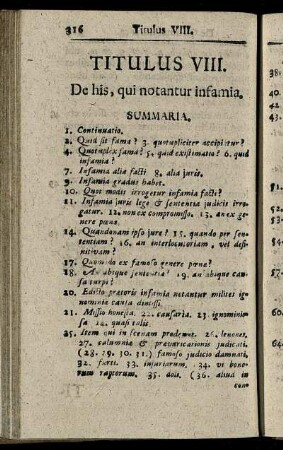 316 Titulus VIII.
TITULUS VIII.
De his, qui notantur infamia.
SUMMARIA.
1. Continuatio.
2. Quid sit fama? 3. quotupliciter accipitur?
4. Quotuplex fama? 5. quid existimatio? 6. quid
infamia?
7. Infamia alia facti 8. alia juris.
9. Infamia gradus habet.
10. Quot modis irrogetur infamia facti?
11. Infamia juris lege & sententia judicis irro-
gatur. 12. non ex compromisso. 13. an ex ge-
nere pœnæ.
14. Quandonam ipso jure? 15. quando per sen-
tentiam? 16. an interlocutoriam, vel defi-
nitivam?
17. Quando ex famoso genere pœnæ?
18. An absque sententia? 19. an absque cau-
sa turpi?
20. Edicto prætoris infamia notantur milites igno-
minie causa dimissi.
21. Missio honesta. 22. causaria. 23. ignominio-
sa 24. quasi talis.
25. Item qui in scenam prodeunt. 26. lenones.
27. calumniæ & prævaricationis judicati.
(28. 29. 30. 31.) famoso judicio damnati,
32. furti. 33. injuriarum. 34. vi bono-
rum raptorum. 35. doli. (36. aliud in
con-